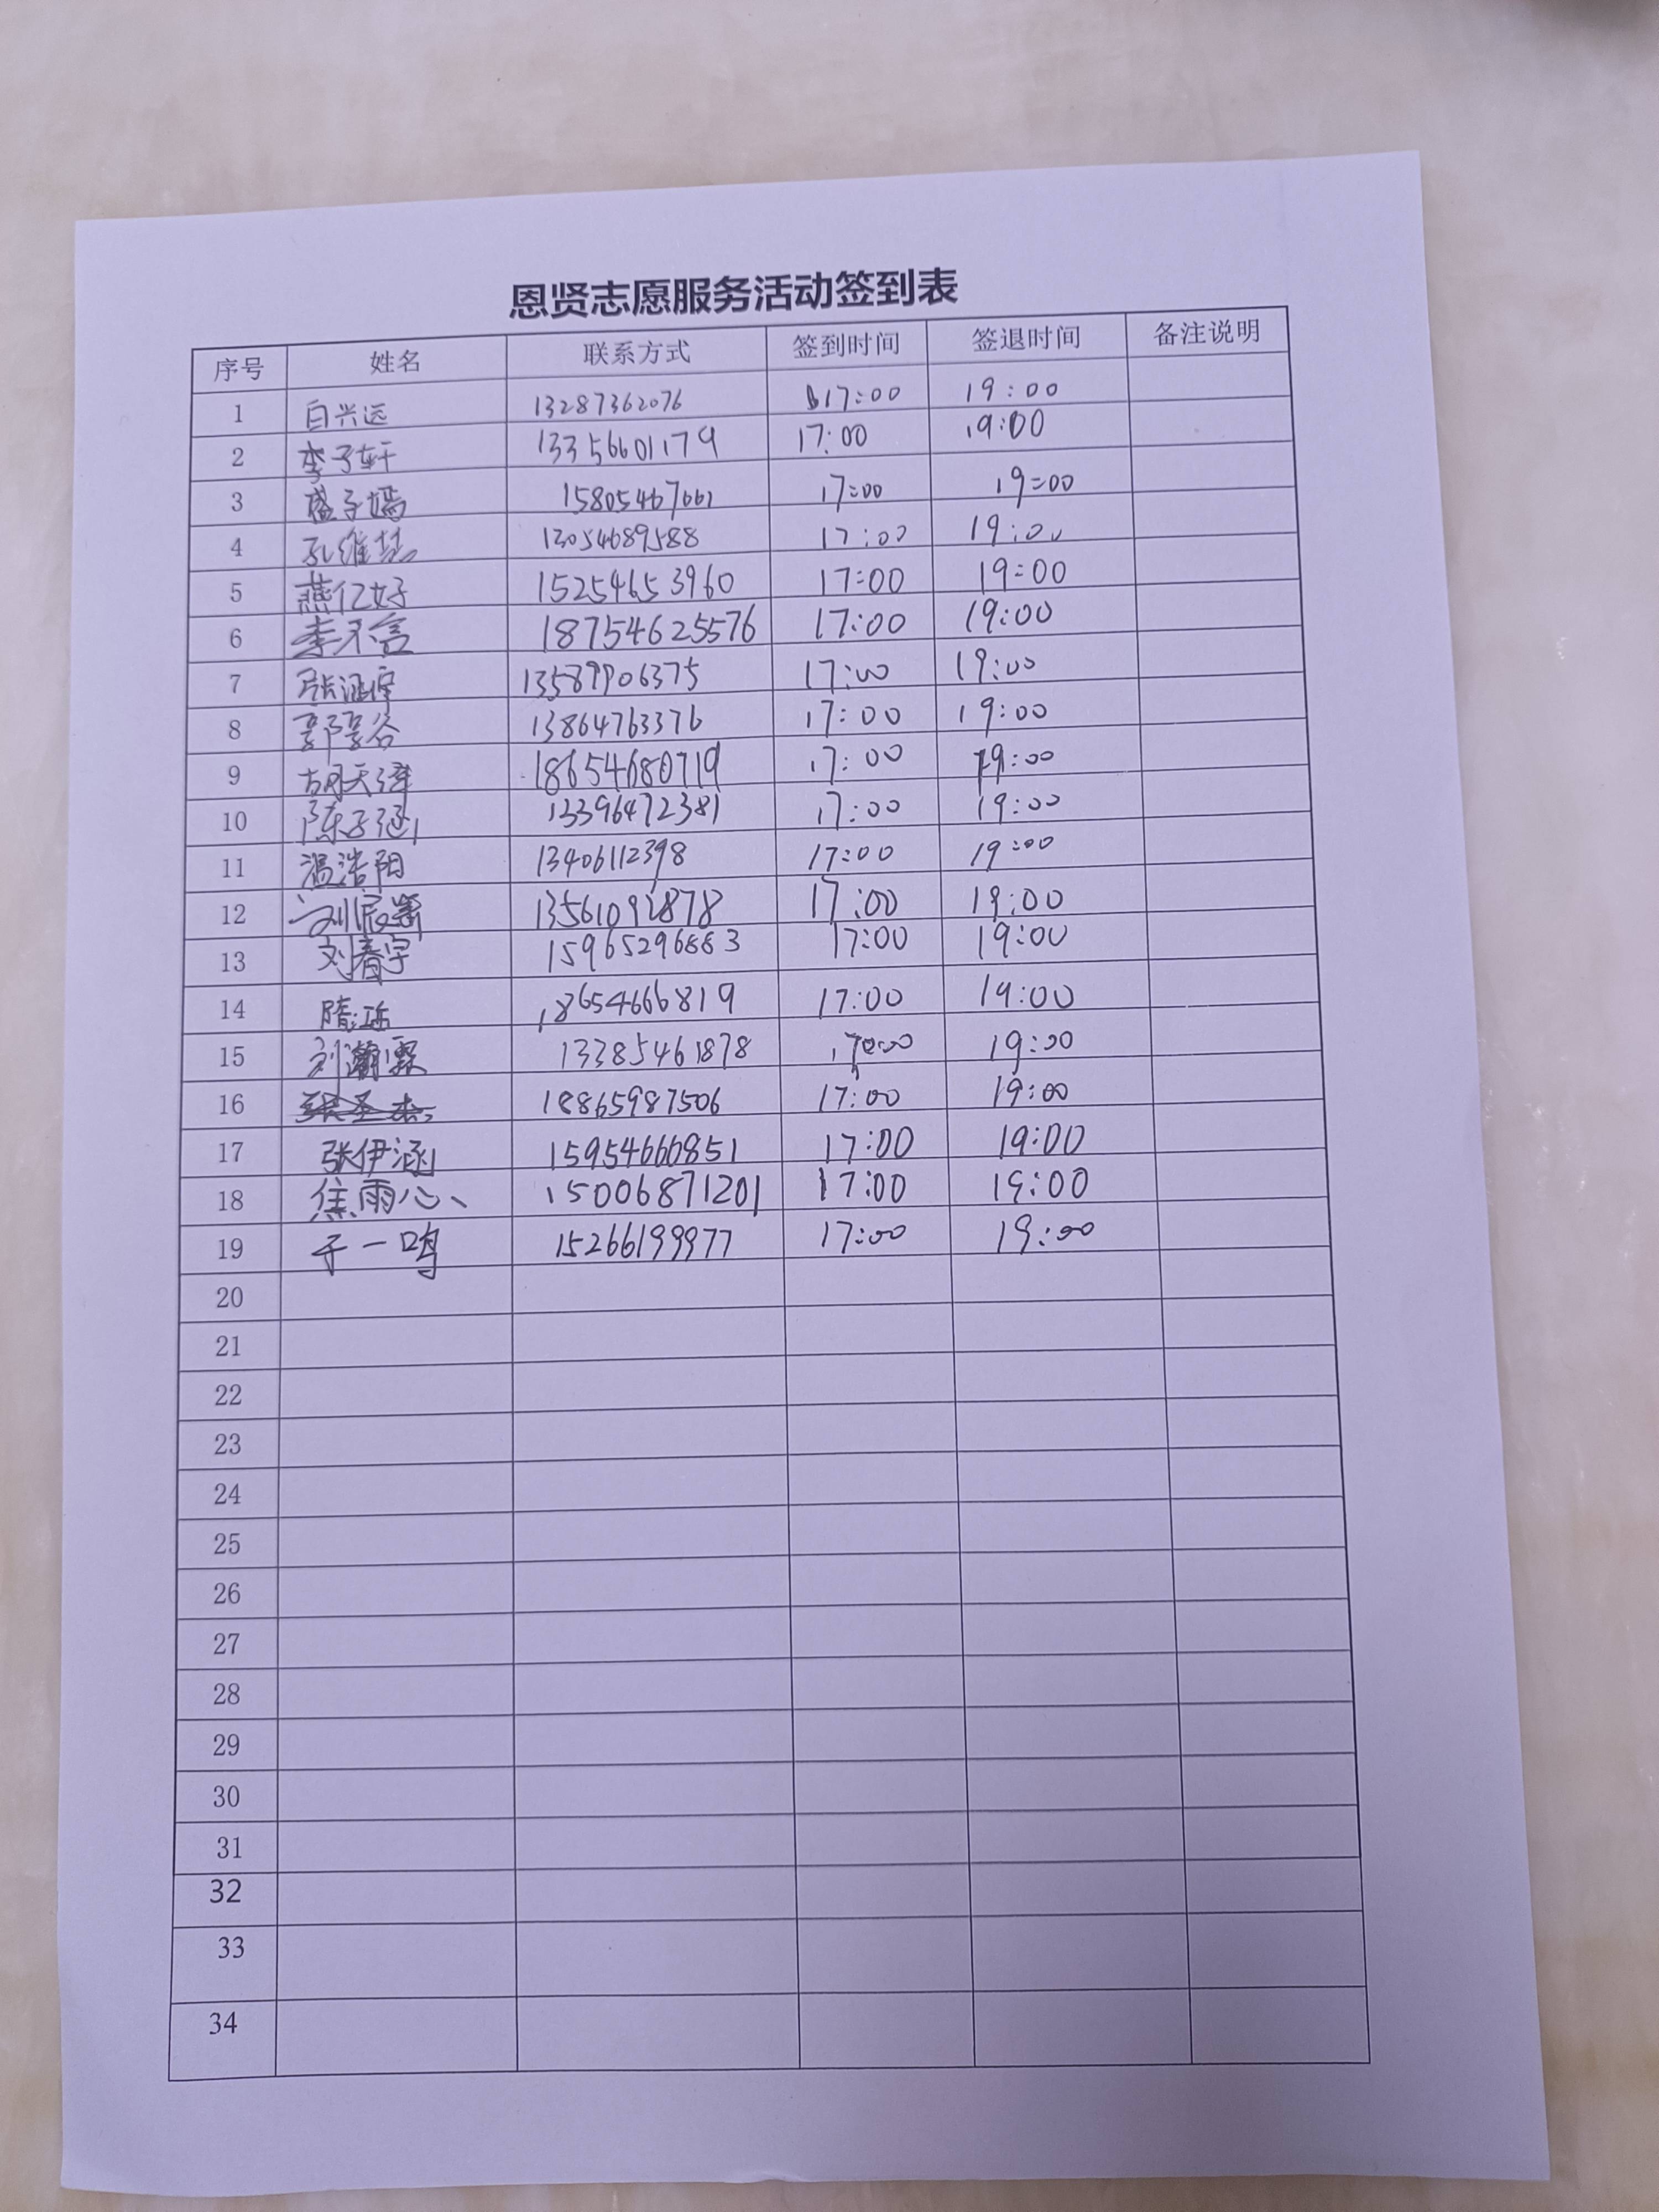 恩贤志愿服务活动签到表
序号 姓名 联系方式 签到时间 签退时间 备注说明
1 白兴远 13287362076 17:00 19:00
2 李子轩 13356601179 17:00 19:00
3 盛子嫣 15805467661 17:00 19:00
4 孔维 13054689588 17:00 19:00
5 燕亿好 15254653960 17:00 19:00
6 李不言 18754625576 17:00 19:00
7 张涵宇 13589906375 17:00 19:00
8 郭 谷 13864763376 17:00 19:00
9 胡天泽 18654680719 17:00 19:00
10 陈子涵 13396472381 17:00 19:00
11 温浩阳 13406112398 17:00 19:00
12 刘宸 17:00 19:00
13 刘春宇 15965296883 17:00 19:00
14 隋 18654666819 17:00 19:00
15 刘瀚霖 13385461878 17:00 19:00
16 张圣杰 18865987506 17:00 19:00
17 张伊涵 15954660851 17:00 19:00
18 焦雨心 15006871201 17:00 19:00
19 于一鸣 15266199977 17:00 19:00
20
21
22
23
24
25
26
27
28
29
30
31
32
33
34